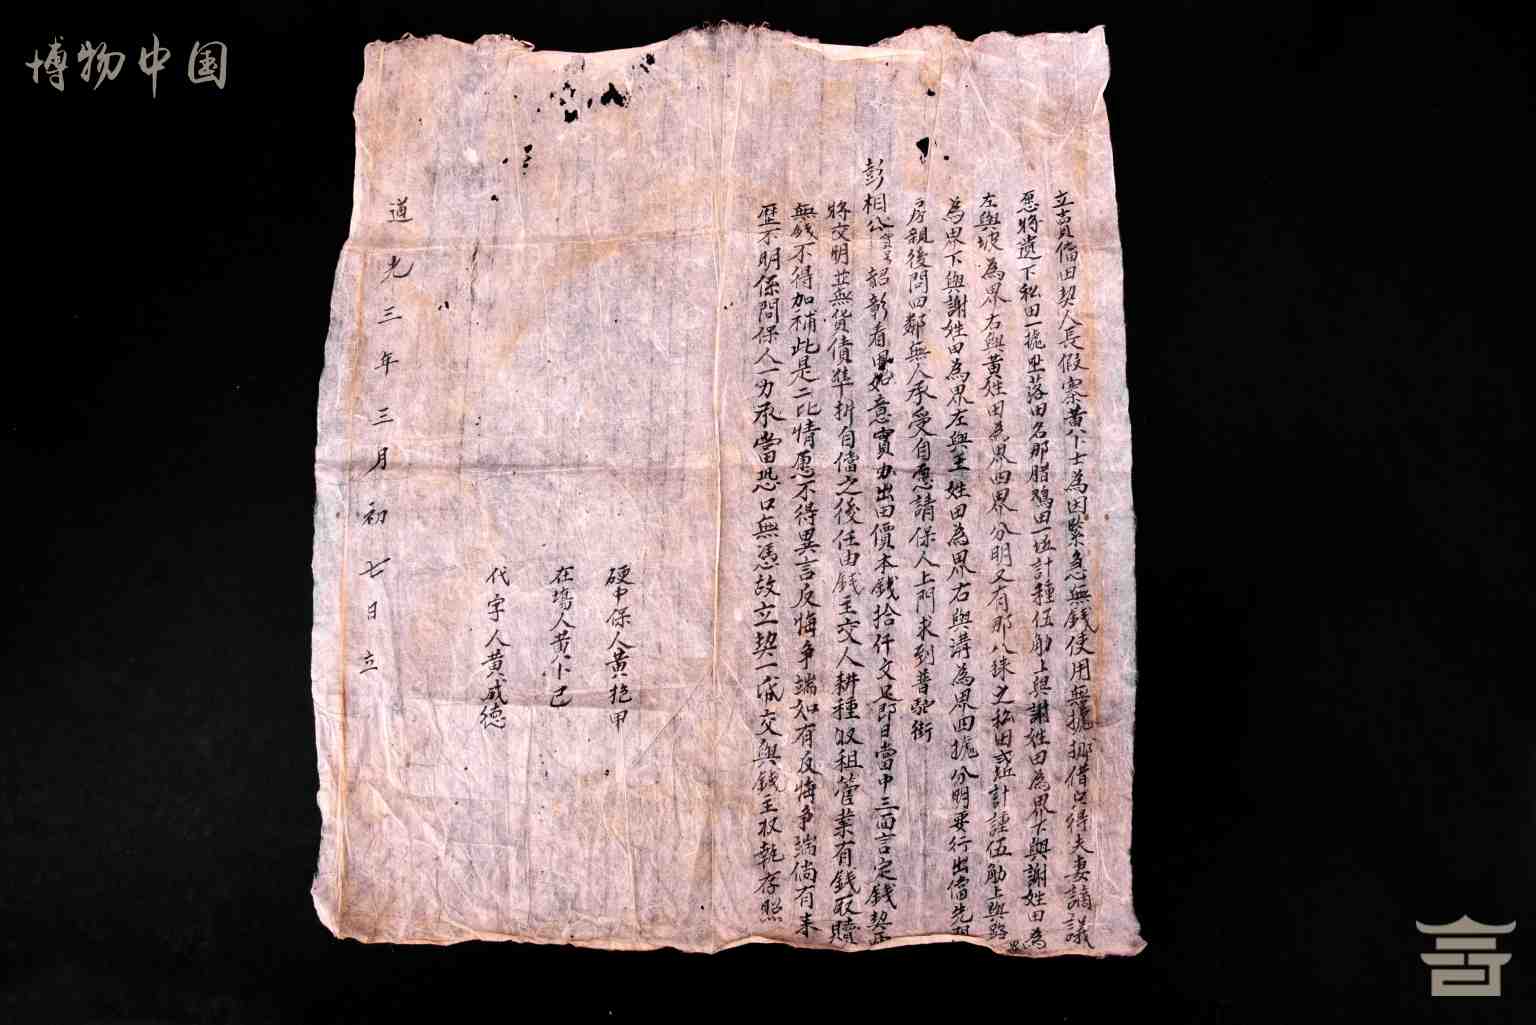 博物中国
立賣當田契人長假寨黃卜士為因緊急無錢使用無挪借只得夫妻謫議
愿將遺下私田一坐落田名那腊鷄田一坵計種伍觔上與謝姓田為界下與謝姓田為界
左與坡為界右與黃姓田為界四界分明又有那八之私田貳坵計種伍觔上與路
為界下與謝姓田為界左與王姓田為界右與溝為界四分明要行出當先問
房親後問四鄰無人承受自愿請保人上門求到普駝街
彭相公韶彰看田如意實办出田價本錢拾仟文足即日當中三面言定錢契正
將交明並無貨債準折自當之後任由錢主交人耕種收租管業有錢取贖
無錢不得加補此是二比情愿不得異言反悔爭端如有反悔爭端倘有来
歷不明係問保人一力承當恐口無憑故立契一紙交與錢主收執存照
硬中保人黃抱甲
在塲人黃卜已
代字人黃咸德
道光三年三月初七日立